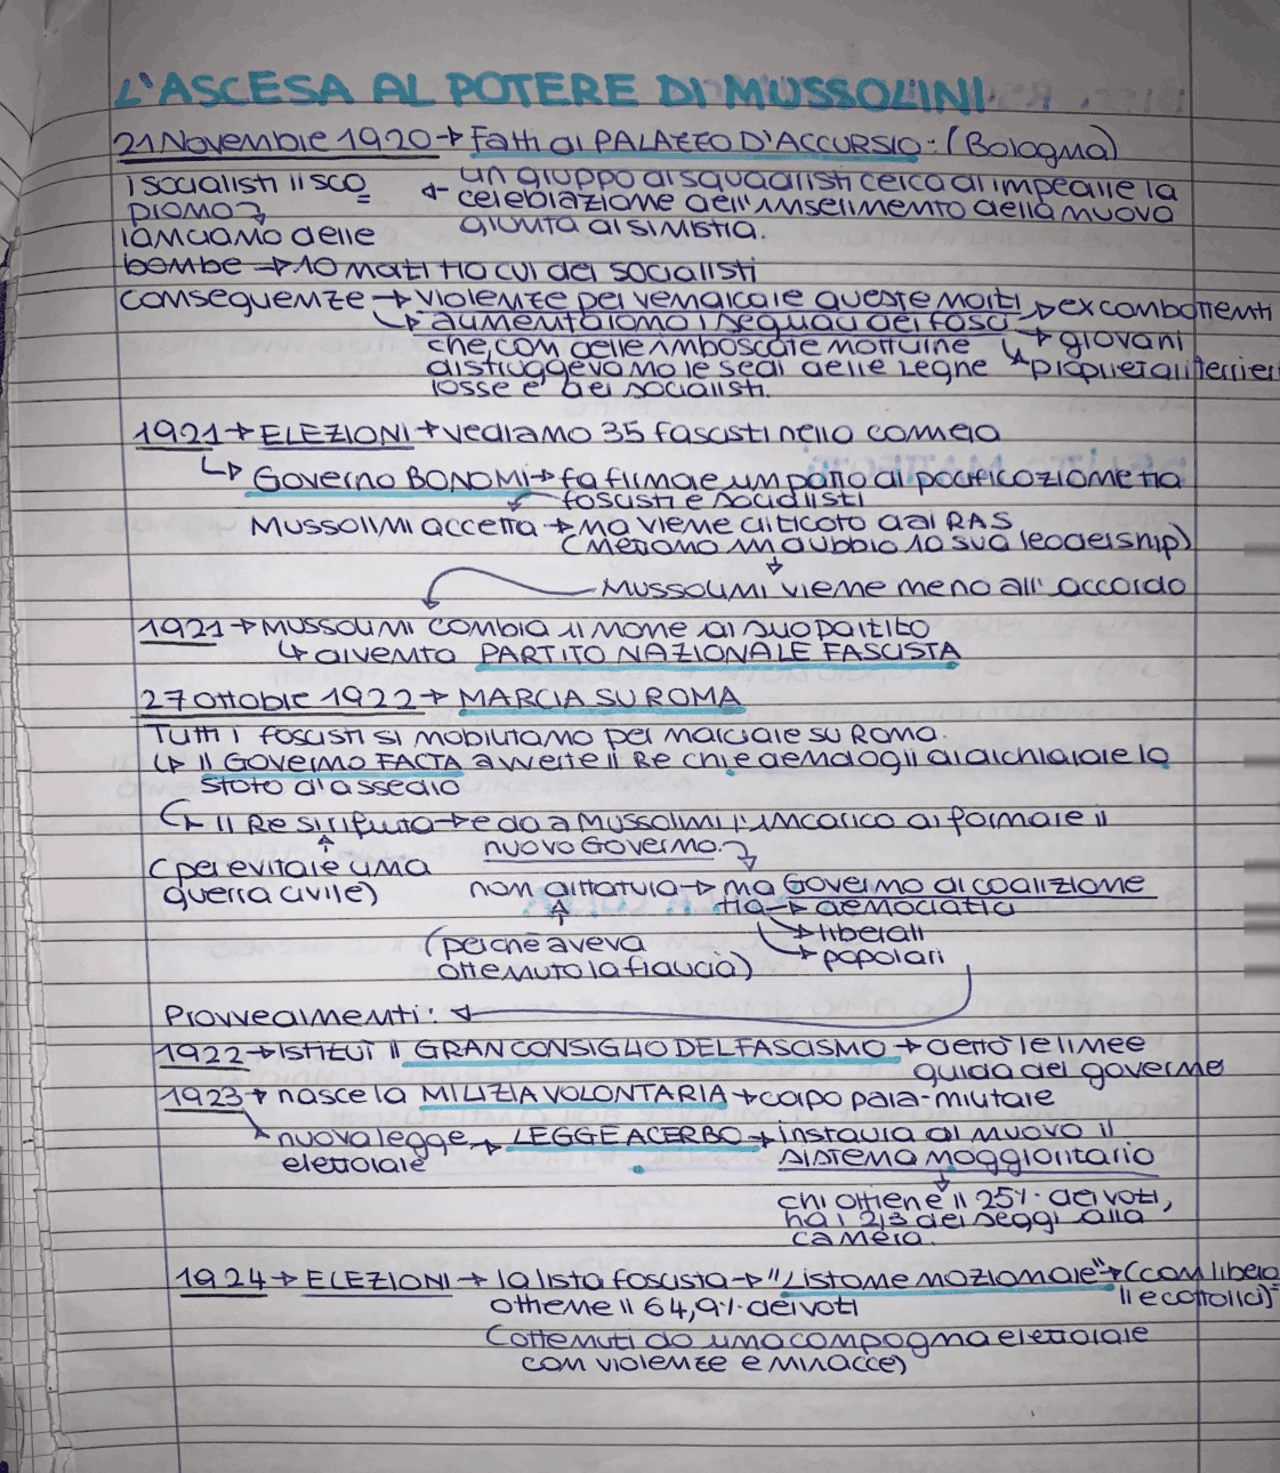 L'ASCESA AL POTERE DI MUSSOLINI
21 Novembre 1920 → Fatti di PALAZZO D'ACCURSIO: (Bologna)
un gruppo di squadristi cerca di impedire la
celebrazione dell'inserimento della nuova
giunta di sinistra.
i socialisti li sco
prono →
lanciano delle
bombe → 10 mati tra cui dei socialisti
conseguenze → violenze per vendicare queste morti → ex combattenti
↳ aumentarono i seguaci dei fasci → giovani
che, con delle imboscate notturne → proprietari terrieri
distruggevano le sedi delle Legne
rosse e dei socialisti.
1921 → ELEZIONI → vediamo 35 fascisti nella camera
↳ Governo BONOMI → fa firmae un patto di pacificazione tra
fascisti e socialisti
Mussolini accetta → ma viene criticato dai RAS
(mettono in dubbio la sua leadership)
Mussolini viene meno all'accordo
1921 → Mussolini cambia il mone al suo partito
↳ diventa PARTITO NAZIONALE FASCISTA
27 ottobre 1922 → MARCIA SU ROMA
Tutti i fascisti si mobilitano per marciare su Roma.
↳ Il Governo FACTA avverte il Re chiedendogli di dichiarare lo
stato d'assedio
↳ Il Re si rifiuta → e da a Mussolini l'incarico di formare il
nuovo Governo.
(per evitare una
guerra civile)
non dittatura → ma Governo di coalizione
tra → democratici
→ liberali
→ popolari
(perchè aveva
ottenuto la fiducia)
Provvedimenti:
1922 → Istituì il GRAN CONSIGLIO DEL FASCISMO → dettò le linee
guida del governe
1923 → nasce la MILIZIA VOLONTARIA → corpo para-militare
nuova legge → LEGGE ACERBO → instaura di nuovo il
elettorale
sistema maggioritario
chi ottiene il 25% dei voti,
ha i 2/3 dei seggi alla
camera.
1924 → ELEZIONI → la lista fascista → "Listone nazionale" → (con libera
li e cattolici)
ottiene il 64,9% dei voti
(ottenuti da una campagna elettorale
con violenze e minacce)